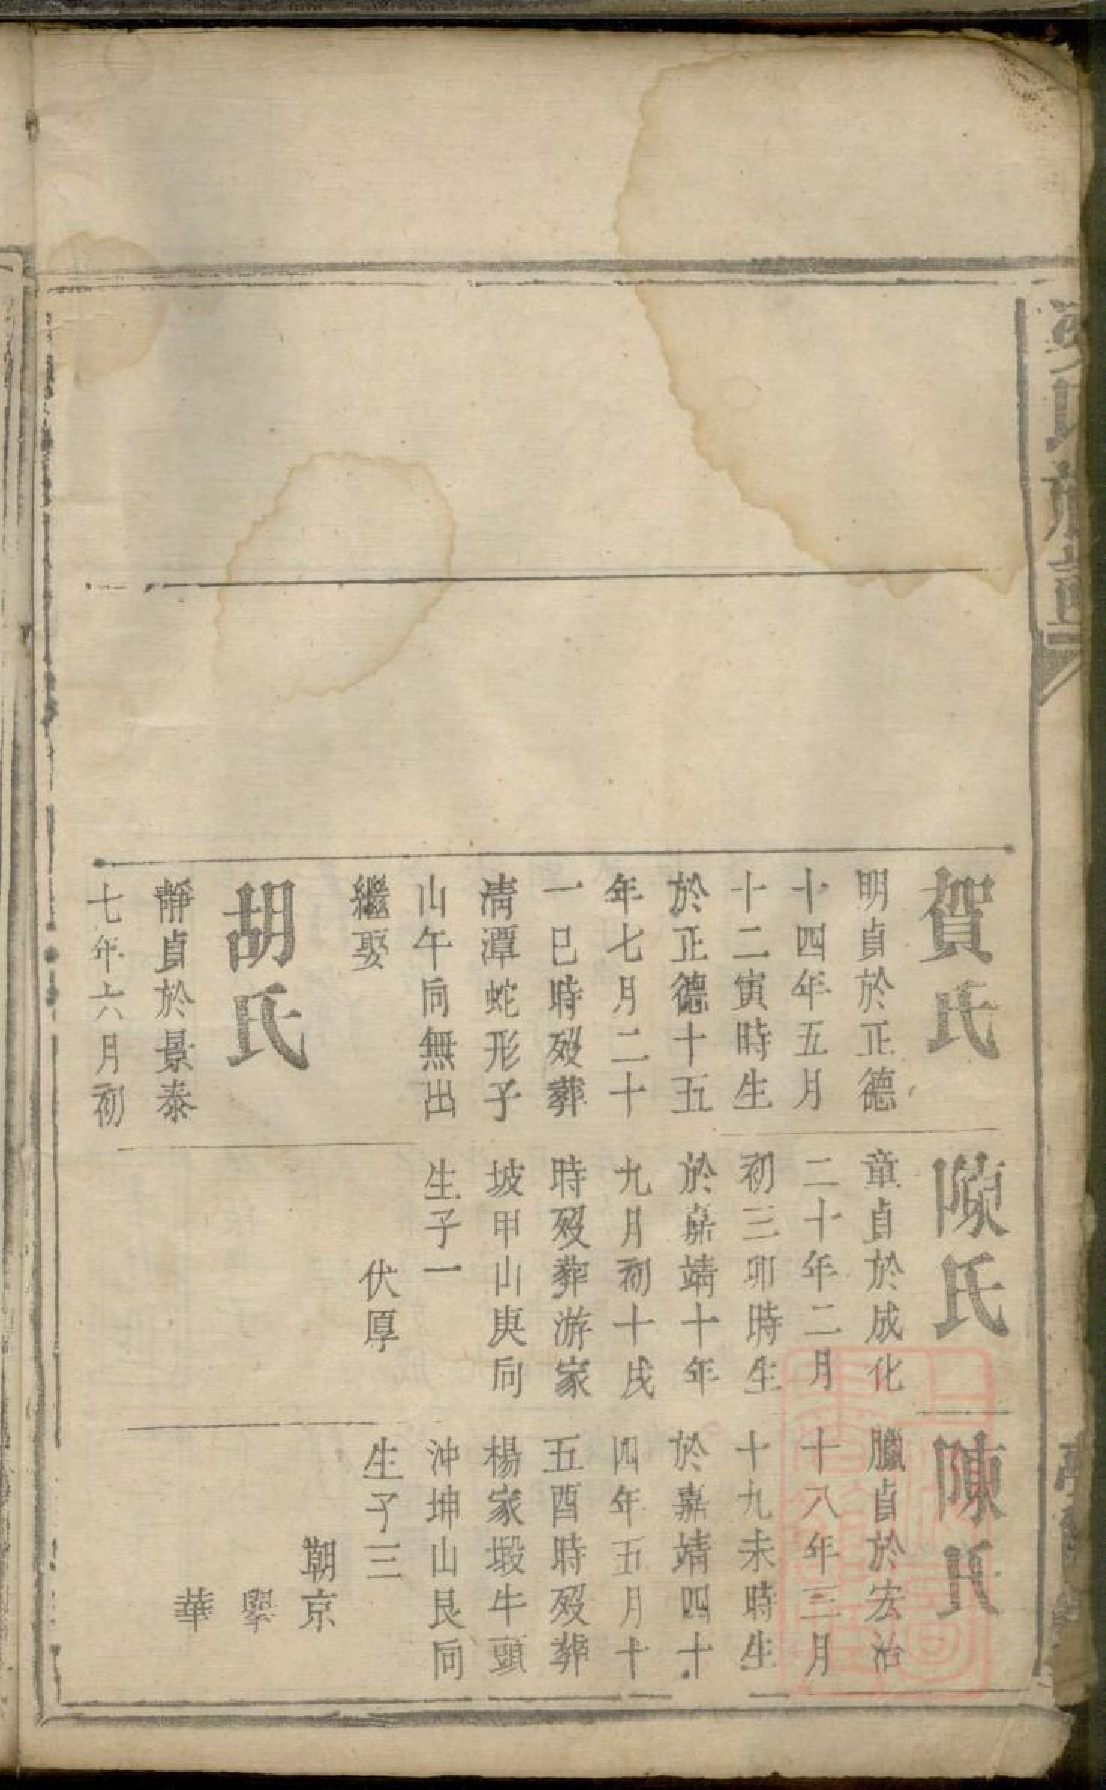 賀氏
明貞於正德
十四年五月
十二寅時生
於正德十五
年七月二十
一巳時歿葬
淸潭蛇形子
山午向無出
繼娶
胡氏
靜貞於景泰
七年六月初
陳氏
童貞於成化
二十年二月
初三卯時生
於嘉靖十年
九月初十戌
時歿葬游家
坡甲山庚向
生子一
伏厚
陳氏
臘貞於宏治
十八年三月
十九未時生
於嘉靖四十
四年五月十
五酉時歿葬
楊家塅牛頭
沖坤山艮向
生子三
朝京
舉
華